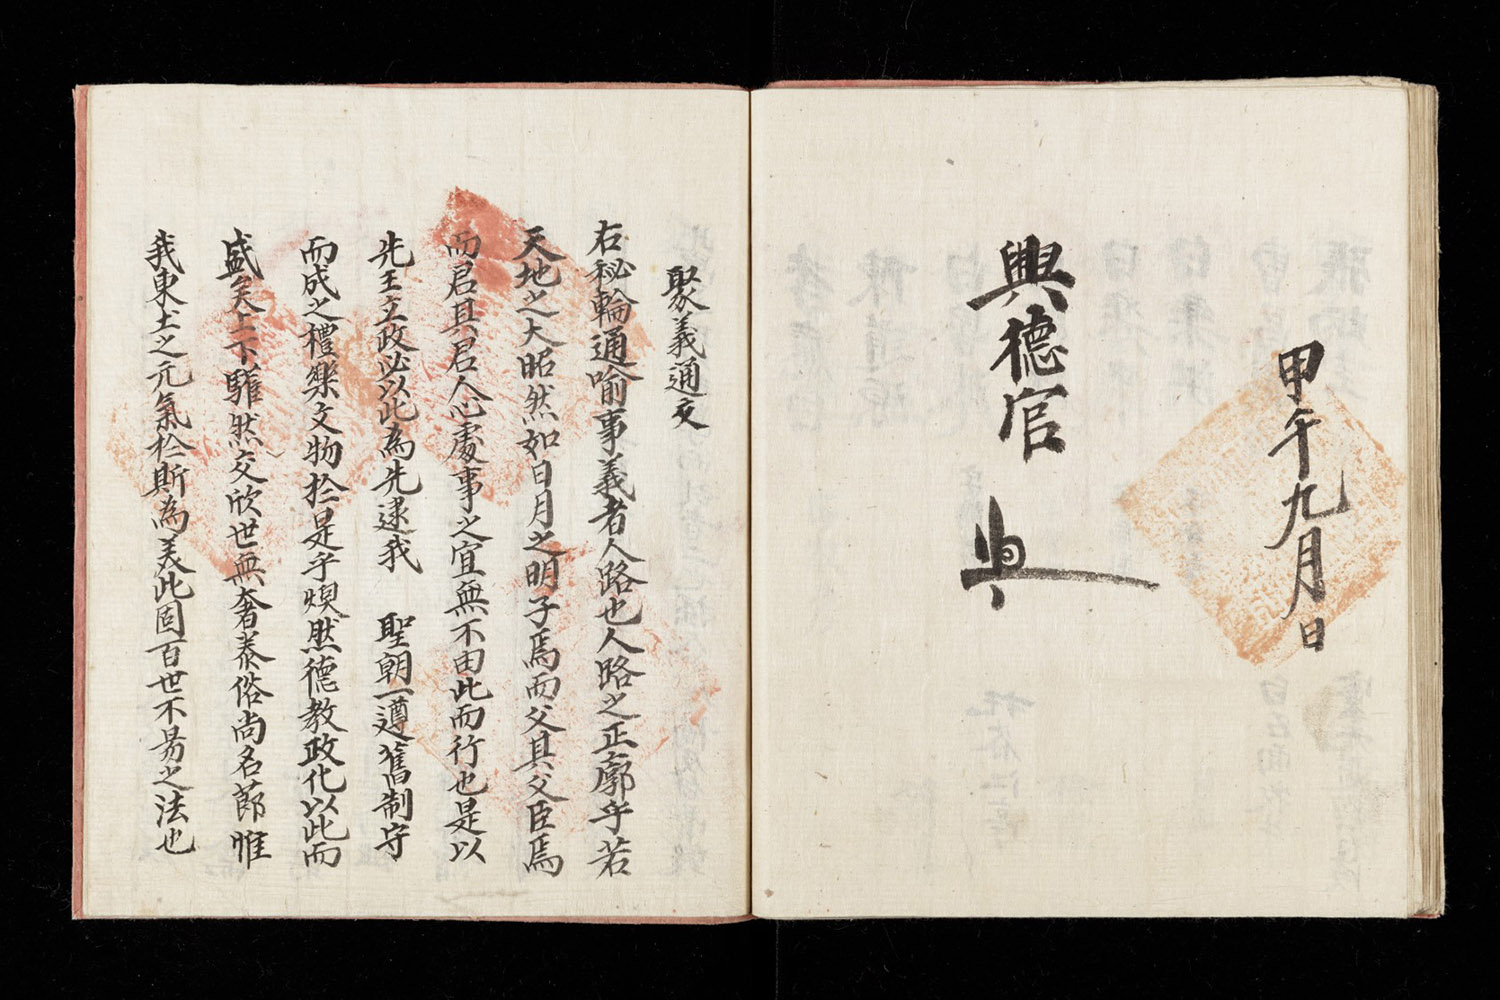 甲午九月日
興德官
聚義通文
右秘輪通喻事義者人路也人路之正廓乎若
天地之大昭然如日月之明子焉而父其父臣焉
而君其君人心處事之宜無不由此而行也是以
先王立政必以此為先逮我 聖朝一遵舊制守
而成之禮樂文物於是乎煥然德教政化以此而
盛矣上下驩然交欣世無奢泰俗尚名節惟
我東土之元氣於斯為美此固百世不易之法也